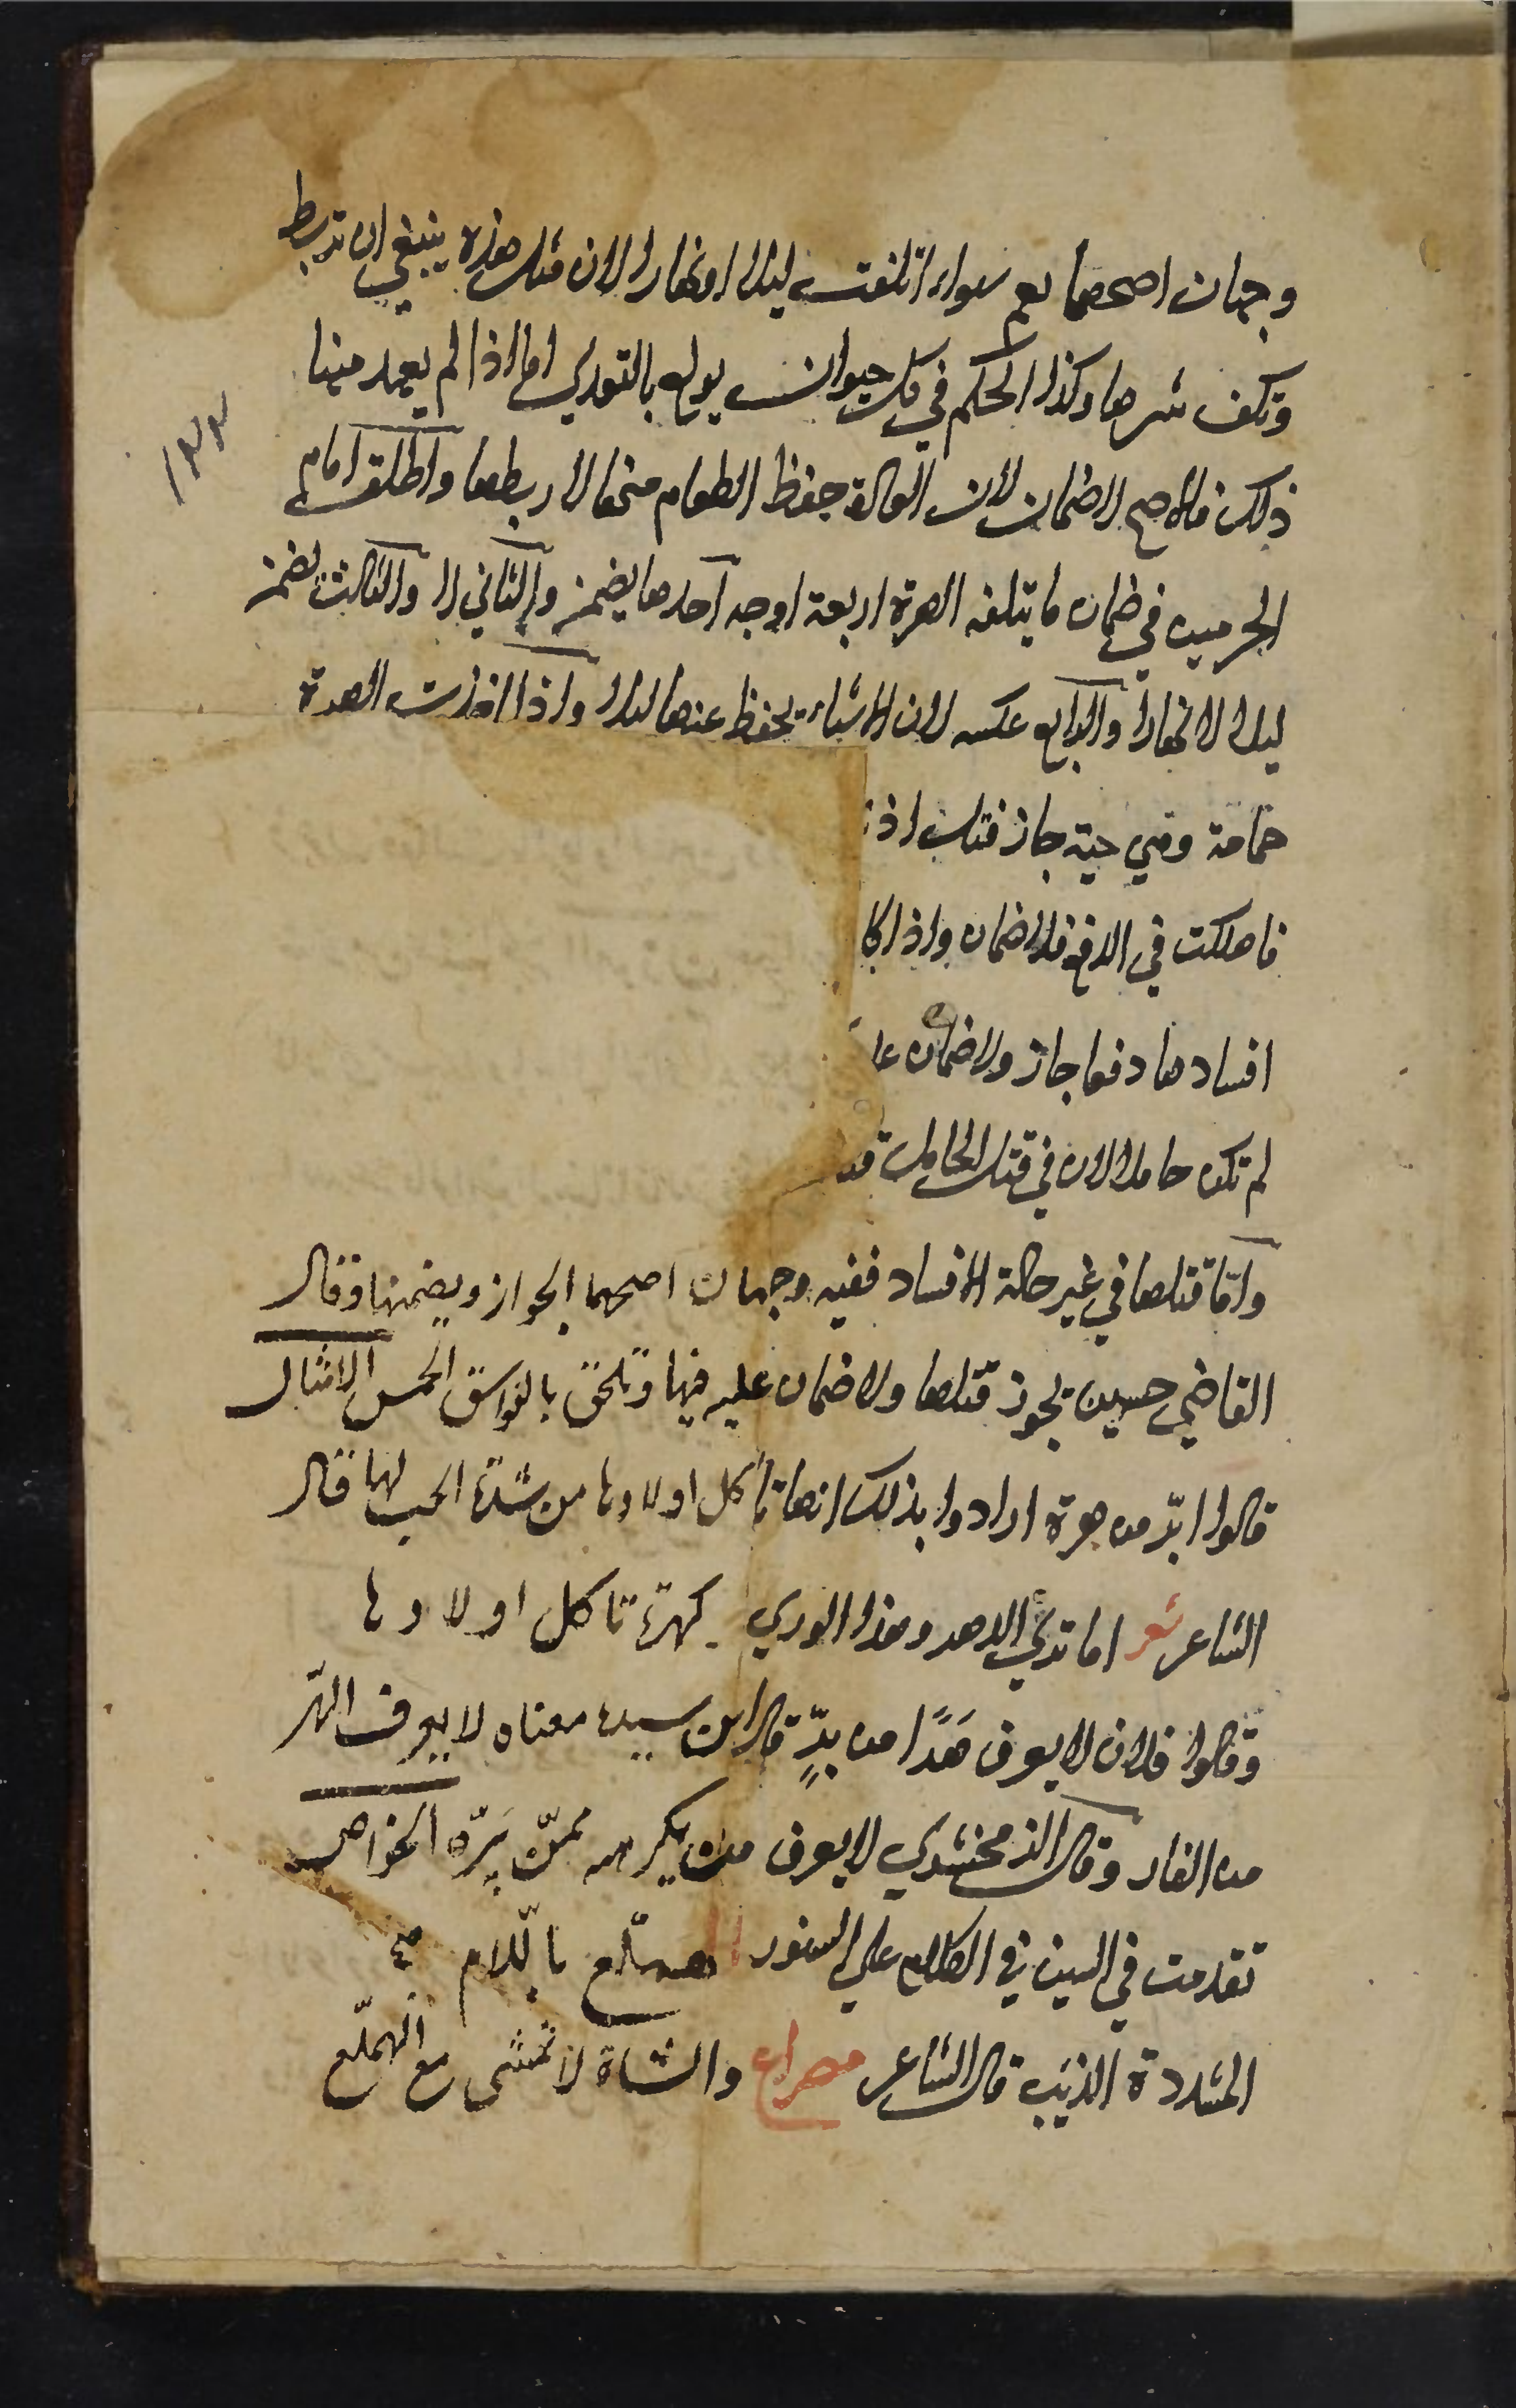 وجهان اصحهما نعم سواء اتلفت ليلا او نهارا لان مثل هذه ينبغي ان تربط
وتكف شرها وكذا الحكم في كل حيوان يولع بالتعدي اما اذا لم يعهد منها
ذلك فالاصح لا ضمان لان العادة حفظ الطعام منها لا ربطها واطلق امام
الحرمين في ضمان ما يتلفه الهرة اربعة اوجه احدها يضمن والثاني لا والثالث يضمن
ليلا لا نهارا والرابع عكسه لان الاشياء تحفظ عنها ليلا واذا اخذت الهرة
حمامة وهي حية جاز فتل اذ
فاهلكت في الدفع فلا ضمان واذا كا
افسادها دفعا جاز ولا ضمان عا
لم تكن حاملا لان في قتل الحامل قتـ
واما قتلها في غير حالة الافساد ففيه وجهان اصحهما الجواز ويضمنها وقال
القاضي حسين يجوز قتلها ولا ضمان عليه فيها وتلحق بالفواسق الخمس الامثال
قالوا ابرّ من هرة ارادوا بذلك انها تأكل اولادها من شدة الحب لها قال
الشاعر شعر اما تري الدهر وهذا الوري كهرة تاكل اولادها
وقالوا فلان لا يعرف هرّا من برّ قال ابن سيده معناه لا يعرف الهر
من الفار وقال الزمخشري لا يعرف من يكرهه ممن يبرّه الخواص
تقدمت في السين في الكلام علي السنور الهملّع باللام
المشددة الذيب قال الشاعر مصراع والشاة لا تمشى مع الهملّع